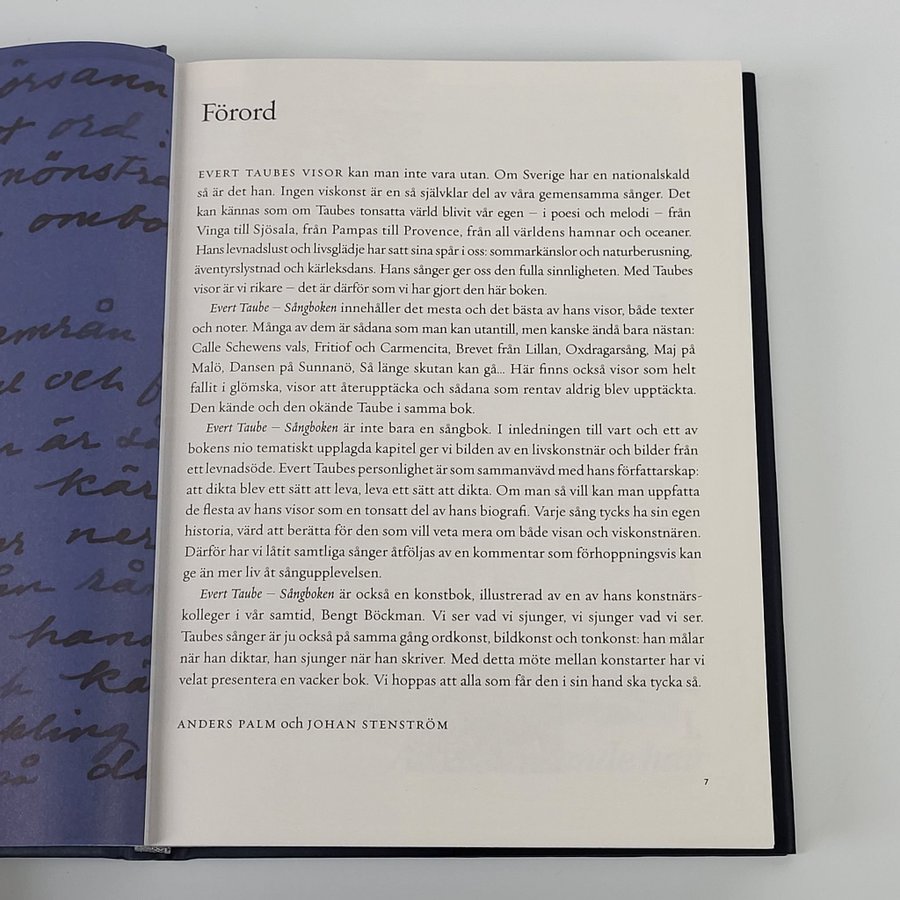 ord
och
är så
kär
ner
hand
kä
så
Förord
EVERT TAUBES VISOR kan man inte vara utan. Om Sverige har en nationalskald
så är det han. Ingen viskonst är en så självklar del av våra gemensamma sånger. Det
kan kännas som om Taubes tonsatta värld blivit vår egen – i poesi och melodi – från
Vinga till Sjösala, från Pampas till Provence, från all världens hamnar och oceaner.
Hans levnadslust och livsglädje har satt sina spår i oss: sommarkänslor och naturberusning,
äventyrslystnad och kärleksdans. Hans sånger ger oss den fulla sinnligheten. Med Taubes
visor är vi rikare – det är därför som vi har gjort den här boken.
Evert Taube – Sångboken innehåller det mesta och det bästa av hans visor, både texter
och noter. Många av dem är sådana som man kan utantill, men kanske ändå bara nästan:
Calle Schewens vals, Fritiof och Carmencita, Brevet från Lillan, Oxdragarsång, Maj på
Malö, Dansen på Sunnanö, Så länge skutan kan gå... Här finns också visor som helt
fallit i glömska, visor att återupptäcka och sådana som rentav aldrig blev upptäckta.
Den kände och den okände Taube i samma bok.
Evert Taube – Sångboken är inte bara en sångbok. I inledningen till vart och ett av
bokens nio tematiskt upplagda kapitel ger vi bilden av en livskonstnär och bilder från
ett levnadsöde. Evert Taubes personlighet är som sammanvävd med hans författarskap:
att dikta blev ett sätt att leva, leva ett sätt att dikta. Om man så vill kan man uppfatta
de flesta av hans visor som en tonsatt del av hans biografi. Varje sång tycks ha sin egen
historia, värd att berätta för den som vill veta mera om både visan och viskonstnären.
Därför har vi låtit samtliga sånger åtföljas av en kommentar som förhoppningsvis kan
ge än mer liv åt sångupplevelsen.
Evert Taube – Sångboken är också en konstbok, illustrerad av en av hans konstnärs-
kolleger i vår samtid, Bengt Böckman. Vi ser vad vi sjunger, vi sjunger vad vi ser.
Taubes sånger är ju också på samma gång ordkonst, bildkonst och tonkonst: han målar
när han diktar, han sjunger när han skriver. Med detta möte mellan konstarter har vi
velat presentera en vacker bok. Vi hoppas att alla som får den i sin hand ska tycka så.
ANDERS PALM och JOHAN STENSTRÖM
7